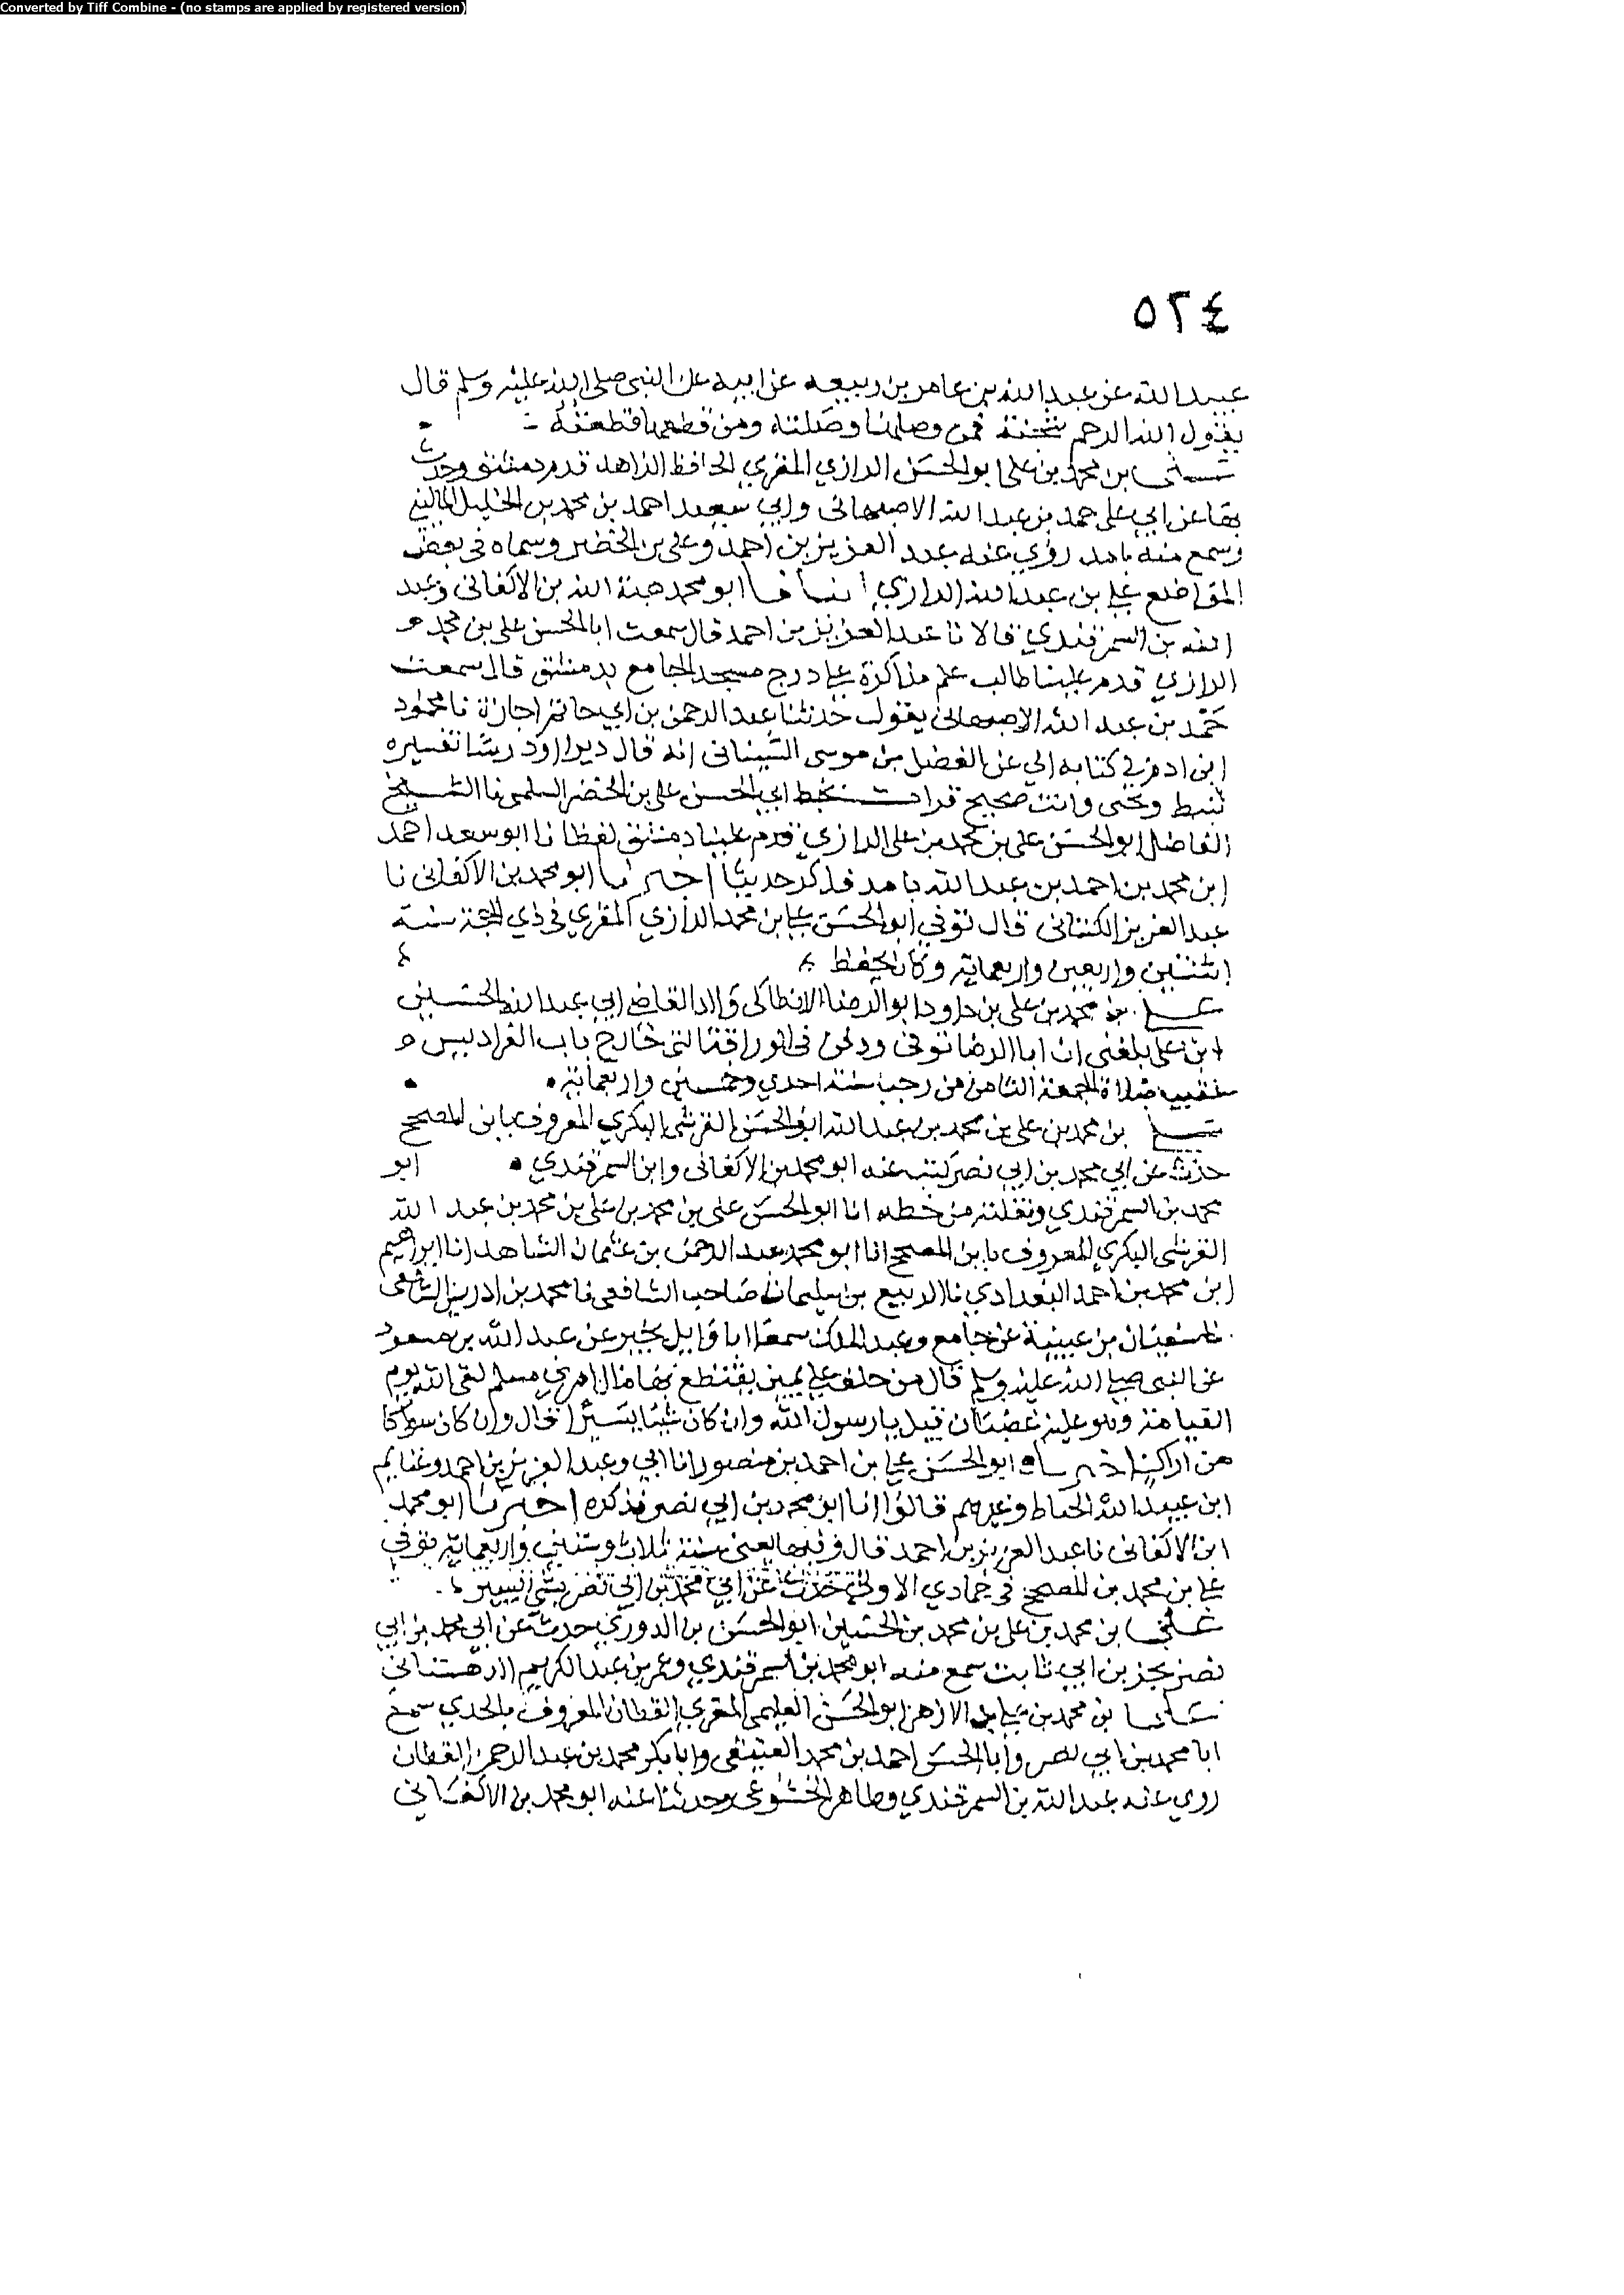 Converted by Tiff Combine - (no stamps are applied by registered version)
٥٢٤
عبيد الله عن عبد الله بن عامر بن ربيعه عن ابيه عن النبي صلى الله عليه وسلم قال
يقول الله الرحم شجنة فمن وصلها وصلته ومن قطعها قطعته
علي بن محمد بن علي ابو الحسن الرازي المقري الحافظ الزاهد قدم دمشق وحدث
بها عن ابي علي حمد بن عبد الله الاصبهاني وابي سعيد احمد بن محمد بن الخليل الماليني
وسمع منه بامد روي عنه عبد العزيز بن احمد وعلي بن الخضر وسماه في بعض
المواضع علي بن عبد الله الرازي انبانا ابو محمد هبة الله بن الاكفاني وعبد
الله بن السمرقندي قالا نا عبد العزيز بن احمد قال سمعت ابا الحسن علي بن محمد
الرازي قدم علينا طالب علم مذاكرة علي درج مسجد الجامع بدمشق قال سمعت
حمد بن عبد الله الاصبهاني يقول حدثنا عبد الرحمن بن ابي حاتم اجازة نا محمود
ابن ادم في كتابه الي عن الفضل بن موسى السيناني انه قال تفسيره
وانت صحيح قرات بخط ابي الحسن علي بن الخضر السلمي نا الشيخ
الفاضل ابو الحسن علي بن محمد بن علي الرازي قدم علينا دمشق لفظا نا ابو سعد احمد
ابن محمد بن احمد بن عبد الله بامد فذكر حديثا اخبرنا ابو محمد بن الاكفاني نا
عبد العزيز الكتاني قال توفي ابو الحسن علي بن محمد الرازي المقري في ذي الحجة سنة
اثنتين واربعين واربعماية وكان يحفظ
علي بن محمد بن علي بن داود ابو الرضا الانطاكي والد القاضي ابي عبد الله الحسين
ابن علي بلغني ان ابا الرضا توفي ودفن في التي خارج باب الفراديس
عقيب صلاة الجمعة الثامن من رجب سنة احدي وخمسين واربعماية
علي بن محمد بن علي بن محمد بن عبد الله ابو الحسن القرشي البكري المعروف بابن المصحح
حدث عن ابي محمد بن ابي نصر كتب عنه ابو محمد بن الاكفاني وابن السمرقندي ابو
محمد بن السمرقندي ونقلته من خطه انا ابو الحسن علي بن محمد بن علي بن محمد بن عبد الله
القرشي البكري المعروف بابن المصحح انا ابو محمد عبد الرحمن بن عثمان الشاهد انا ابراهيم
ابن محمد بن احمد البغدادي نا الربيع بن سليمان صاحب الشافعي نا محمد بن ادريس الشافعي
نا سفيان بن عيينة عن جامع وعبد الملك سمعا ابا وايل يخبر عن عبد الله بن مسعود
عن النبي صلى الله عليه وسلم قال من حلف علي يمين يقتطع بها مال امري مسلم لقي الله يوم
القيامة وهو عليه غضبان قيل يا رسول الله وان كان شيئا يسيرا قال وان كان سواكا
من اراك اخبرناه ابو الحسن علي بن احمد بن منصور انا ابي وعبد العزيز بن احمد وغنايم
ابن عبيد الله الخياط وغيرهم قالوا انا ابو محمد بن ابي نصر فذكره اخبرنا ابو محمد
ابن الاكفاني نا عبد العزيز بن احمد قال وفيها يعني سنة ثلاث وستين واربعماية توفي
علي بن محمد بن المصحح في جمادي الاولي حدث عن ابي محمد بن ابي نصر بشي يسير
علي بن محمد بن علي بن محمد بن الحسين ابو الحسن بن الدوري حدث عن ابي محمد بن ابي
نصر بجز بن ابي ثابت سمع منه ابو محمد بن السمرقندي وعمر بن عبد الكريم الدهستاني
علي بن محمد بن علي بن الازهر ابو الحسن العليمي المقري القطان المعروف بالجدي سمع
ابا محمد بن ابي نصر وابا الحسن احمد بن محمد العتيقي وابا بكر محمد بن عبد الرحمن القطان
روي عنه عبد الله بن السمرقندي وطاهر الخشوعي وحدثنا عنه ابو محمد بن الاكفاني